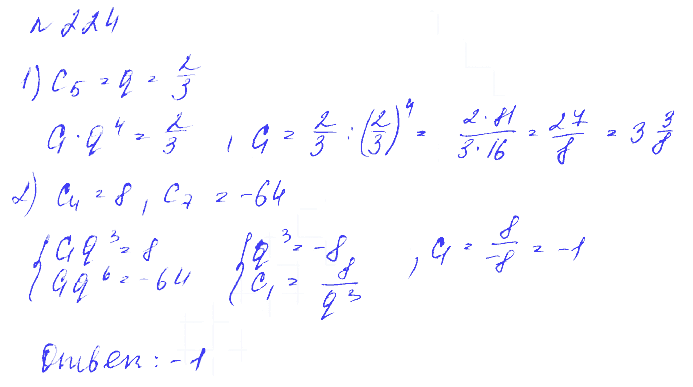 № 224
1) C₅ = q = 2/3
C₁ · q⁴ = 2/3 , C₁ = 2/3 : (2/3)⁴ = (2·81)/(3·16) = 27/8 = 3 3/8
2) C₄ = 8 , C₇ = -64
{ C₁q³ = 8 { q³ = -8
{ C₁q⁶ = -64 { C₁ = 8/q³ , C₁ = 8/-8 = -1
Ответ: -1